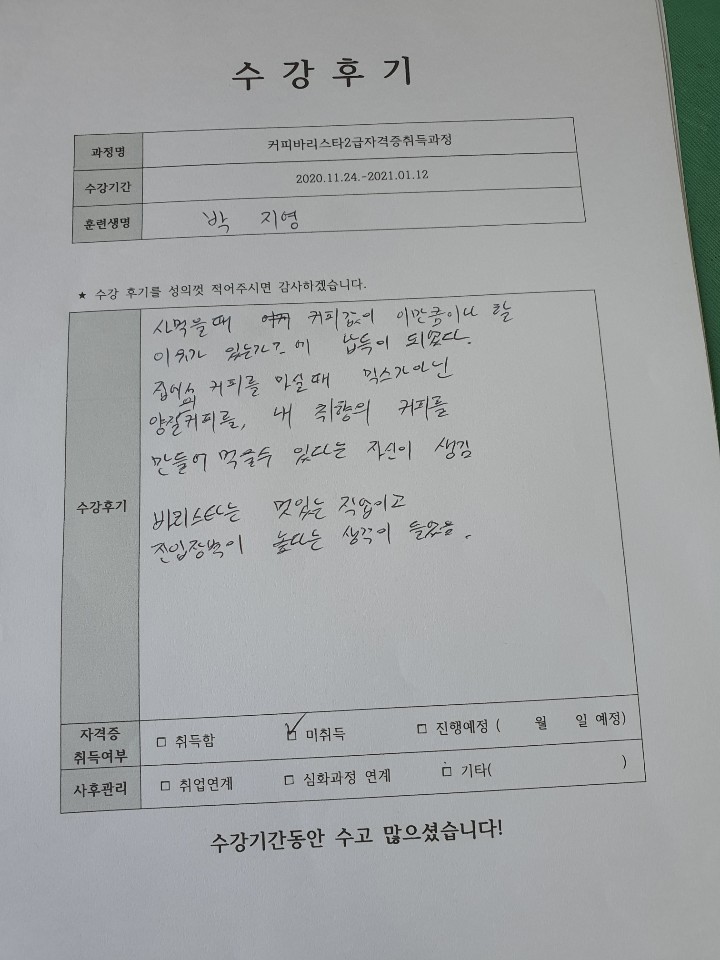 수 강 후 기
과정명 커피바리스타2급자격증취득과정
수강기간 2020.11.24.-2021.01.12
훈련생명 박 지영
★ 수강 후기를 성의껏 적어주시면 감사하겠습니다.
수강후기
사먹을때 커피값이 이만큼이나 할
이유가 있는가? 에 납득이 되었다.
집에서 커피를 마실때 믹스가아닌
양질의 커피를, 내 취향의 커피를
만들어 먹을수 있다는 자신이 생김
바리스타는 멋있는 직업이고
진입장벽이 높다는 생각이 들었음.
자격증 취득여부 □ 취득함 ☑ 미취득 □ 진행예정 ( 월 일 예정)
사후관리 □ 취업연계 □ 심화과정 연계 □ 기타( )
수강기간동안 수고 많으셨습니다!